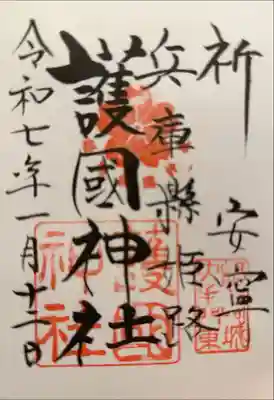 祈安寧
兵庫縣姫路
護國神社
令和七年一月十二日
護國
神社